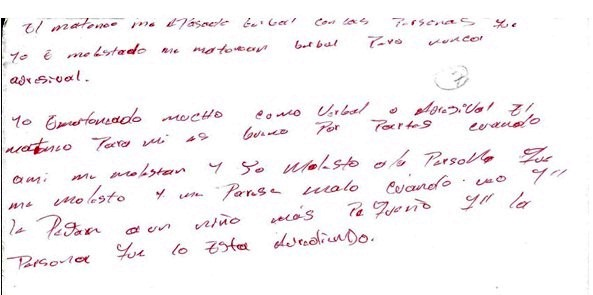 El matoneo me a Pasado berbal con las Personas que
Yo E molestado me matonean berbal Pero nunca
agresival.
Yo Ematoniado mucho como Verbal o Agresival El
matoneo Para mi es bueno Por Partes cuando
ami me molestan y yo Molesto a la Persona que
me molesto y me Parese malo cuando veo y
le Pegan a un niño más Pequeño y la
Persona que lo Esta Agrediendo.